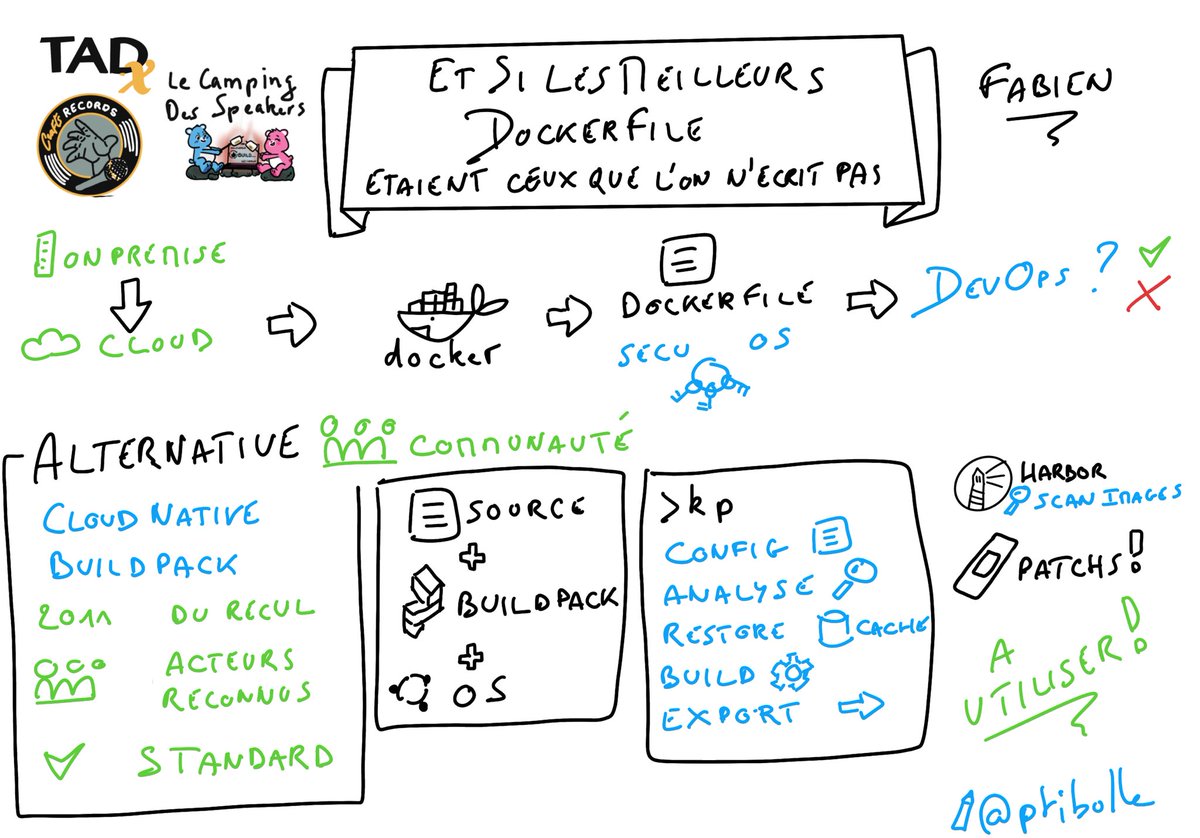 TADx
Le Camping
Des Speakers
Crafts RECORDS
BUILD
ET SI LES MEILLEURS
DOCKERFILE
ETAIENT CEUX QUE L'ON N'ECRIT PAS
FABIEN
ON PRÉMISE
CLOUD
docker
DOCKERFILE
SÉCU OS
DEVOPS ?
ALTERNATIVE COMMUNAUTÉ
CLOUD NATIVE
BUILDPACK
2011 DU RECUL
ACTEURS
RECONNUS
STANDARD
SOURCE
+
BUILDPACK
+
OS
>kp
CONFIG
ANALYSE
RESTORE CACHE
BUILD
EXPORT
HARBOR
SCAN IMAGES
PATCHS!
A
UTILISER!
@ptibolle